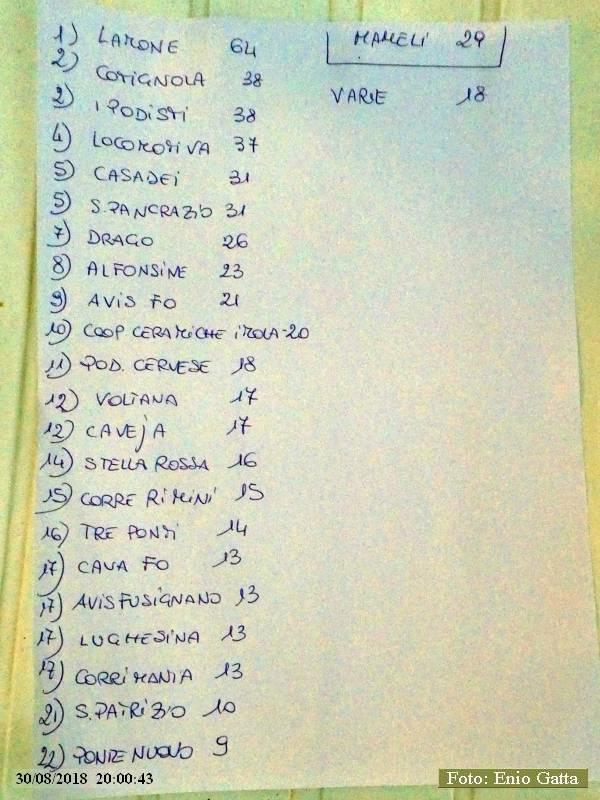 1) LAMONE 64
2) COTIGNOLA 38
2) I PODISTI 38
4) LOCOMOTIVA 37
5) CASADEI 31
5) S. PANCRAZIO 31
7) DRAGO 26
8) ALFONSINE 23
9) AVIS FO 21
10) COOP CERAMICHE IMOLA - 20
11) POD. CERVESE 18
12) VOLTANA 17
12) CAVEJA 17
14) STELLA ROSSA 16
15) CORRE RIMINI 15
16) TRE PONTI 14
17) CAVA FO 13
17) AVIS FUSIGNANO 13
17) LUGHESINA 13
17) CORRIMANIA 13
21) S. PATRIZIO 10
22) PONTE NUOVO 9
MAMELI 29
VARIE 18
30/08/2018 20:00:43
Foto: Enio Gatta